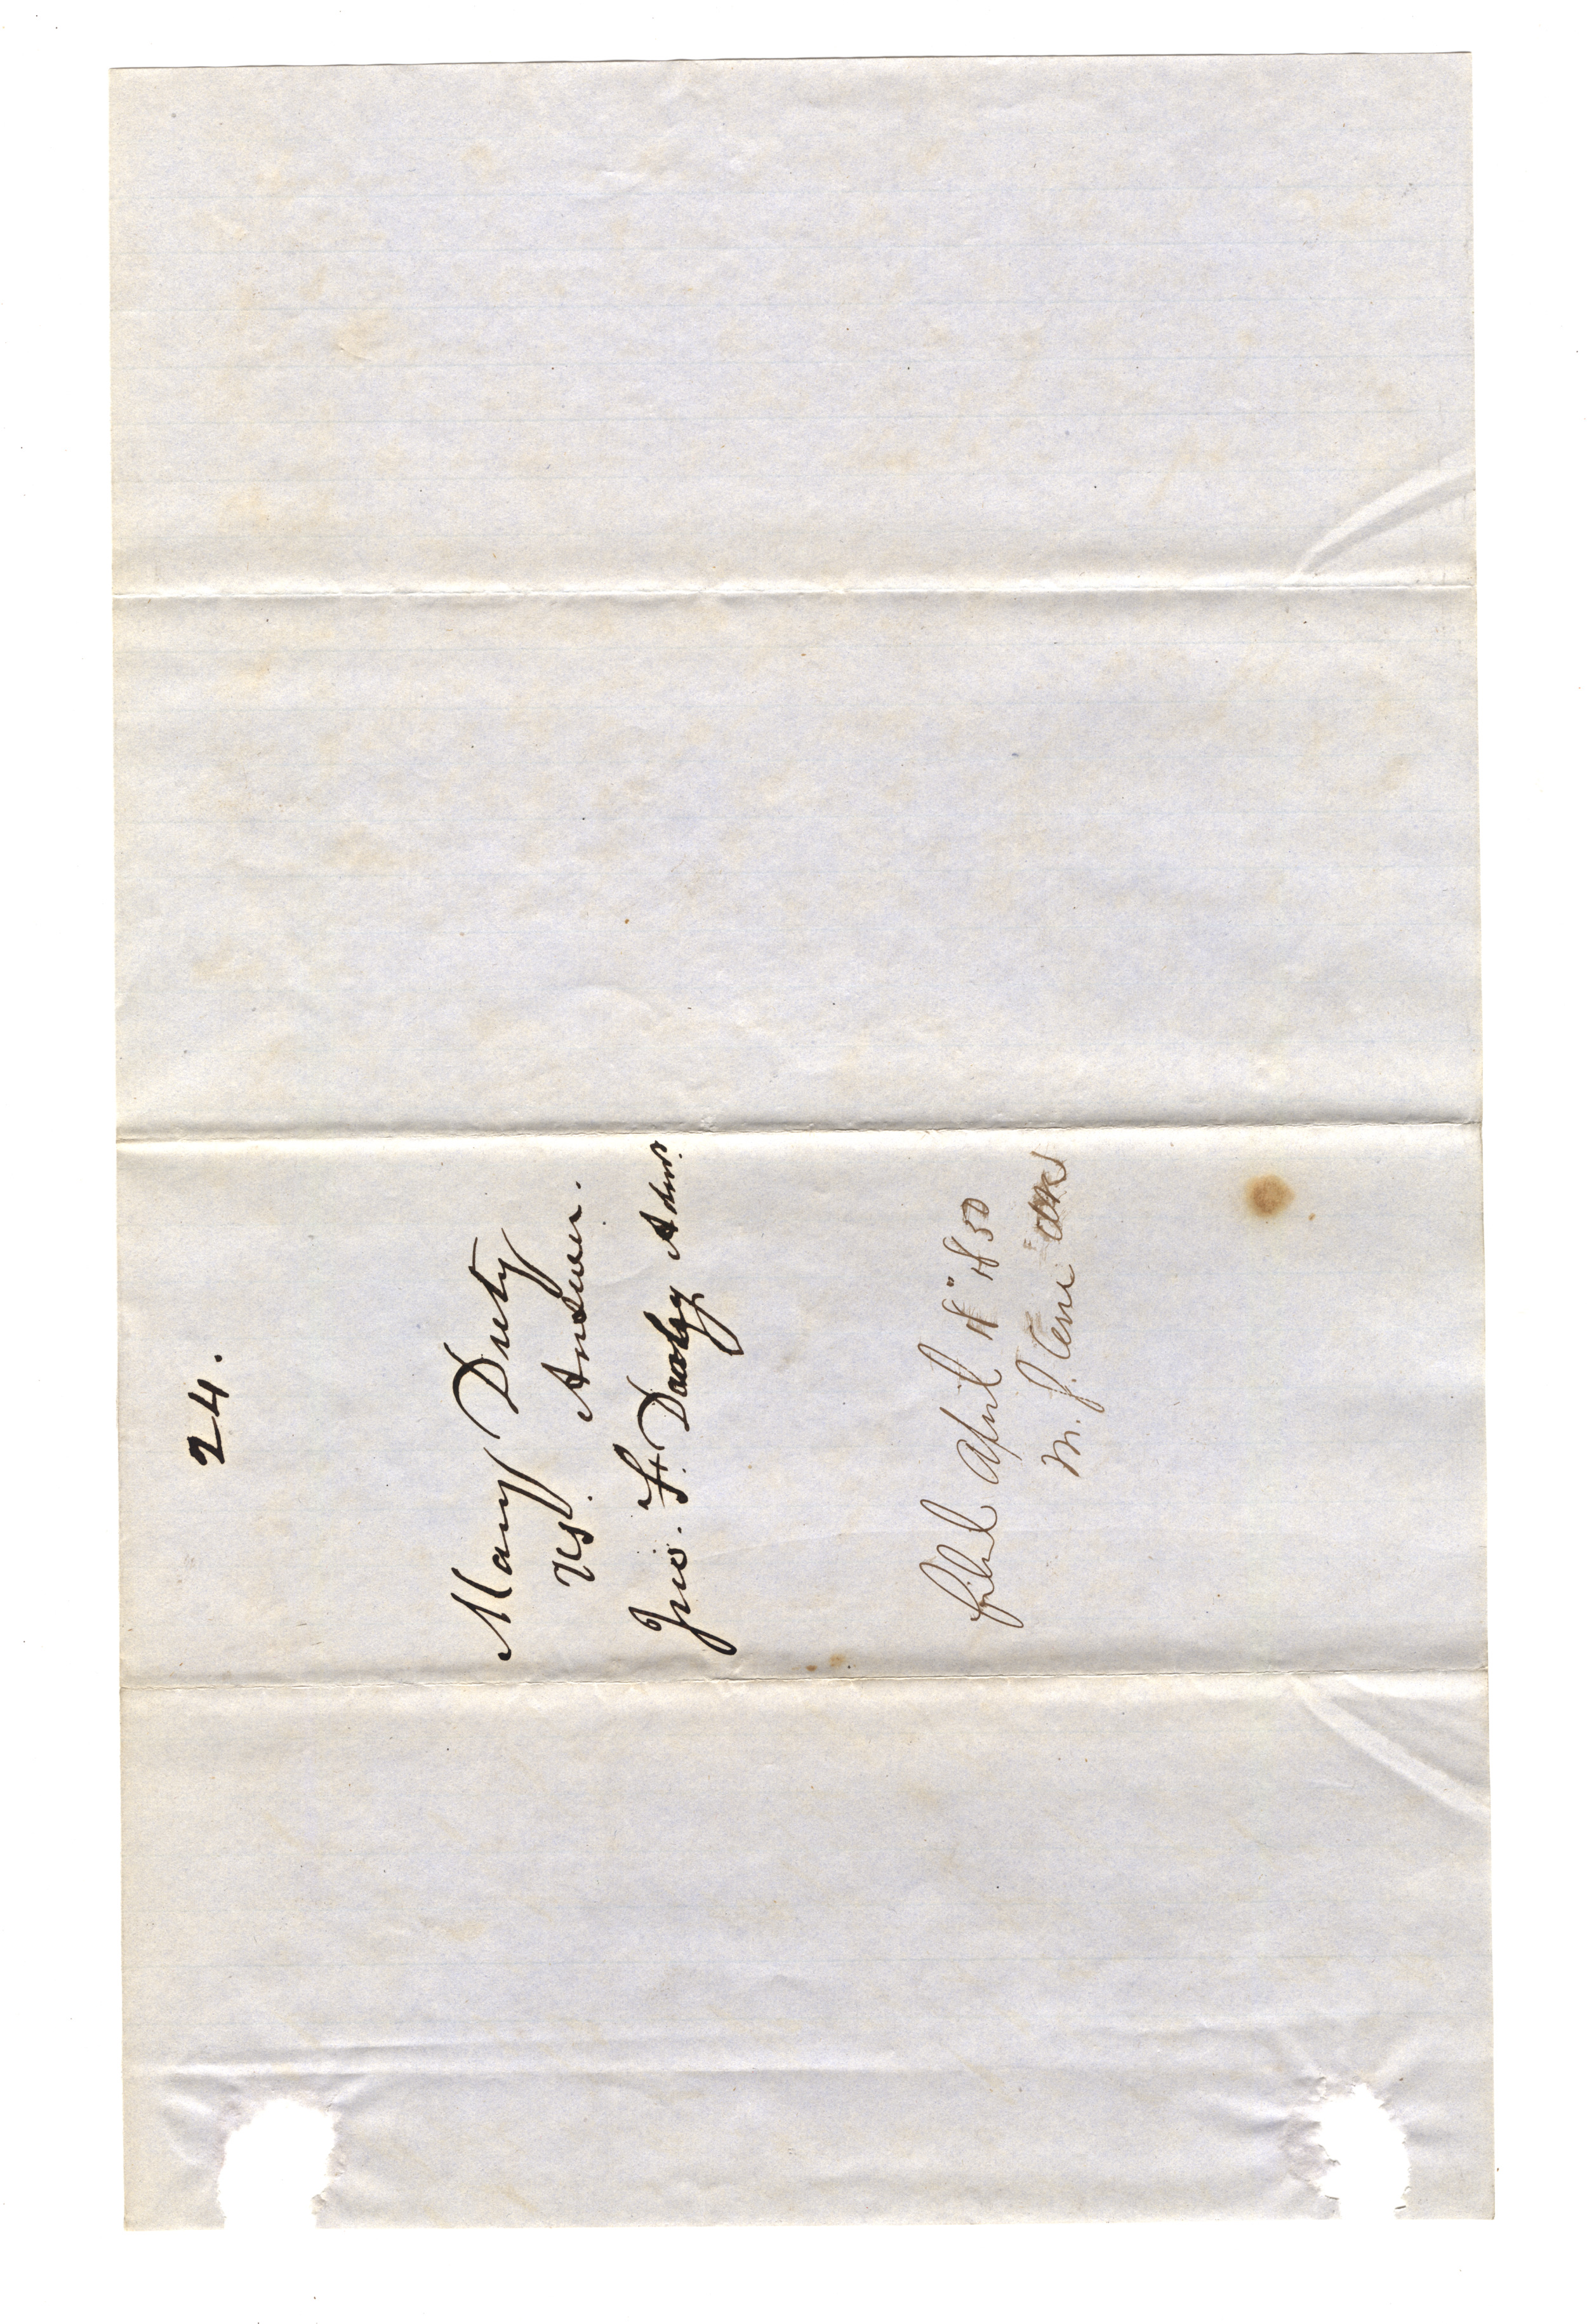 24.
Mary Duty
vs. Answer.
Jno. F. Darby Admr.
filed April 18" 1850
M. S. Cerre Clk